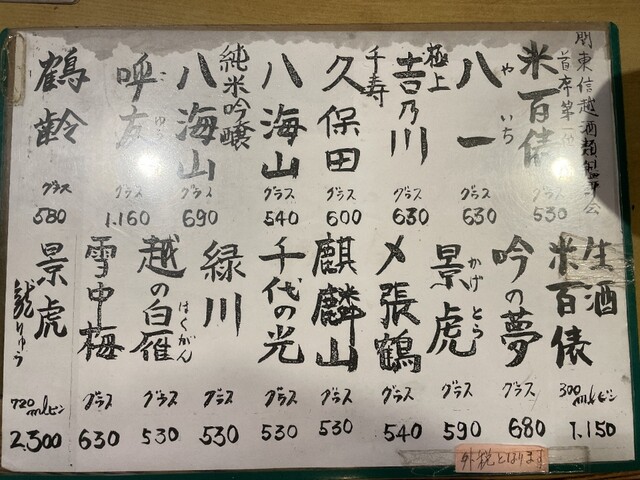 関東信越酒類
首席第一
米百俵
グラス
530
八一
やいち
グラス
630
極上
吉乃川
グラス
630
久保田
千寿
グラス
600
八海山
グラス
540
純米吟醸
八海山
グラス
690
呼友
こゆう
グラス
1.160
鶴齢
グラス
580
生酒
米百俵
300mlビン
1.150
吟の夢
グラス
680
景虎
かげとら
グラス
590
〆張鶴
グラス
540
麒麟山
グラス
530
千代の光
グラス
530
緑川
グラス
530
越の白雁
はくがん
グラス
530
雪中梅
グラス
630
景虎
龍りゅう
720mlビン
2.300
外税となります